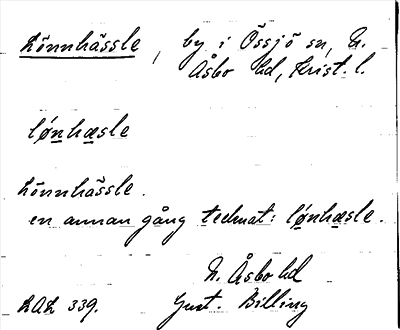 Lönnhässle, by i Össjö sn, N.
Åsbo hd, Krist. l.
lǿnhæsle
Lönnhässle.
en annan gång tecknat: lǿnhæsle.
N. Åsbo hd
LAL 339. Gust. Billing